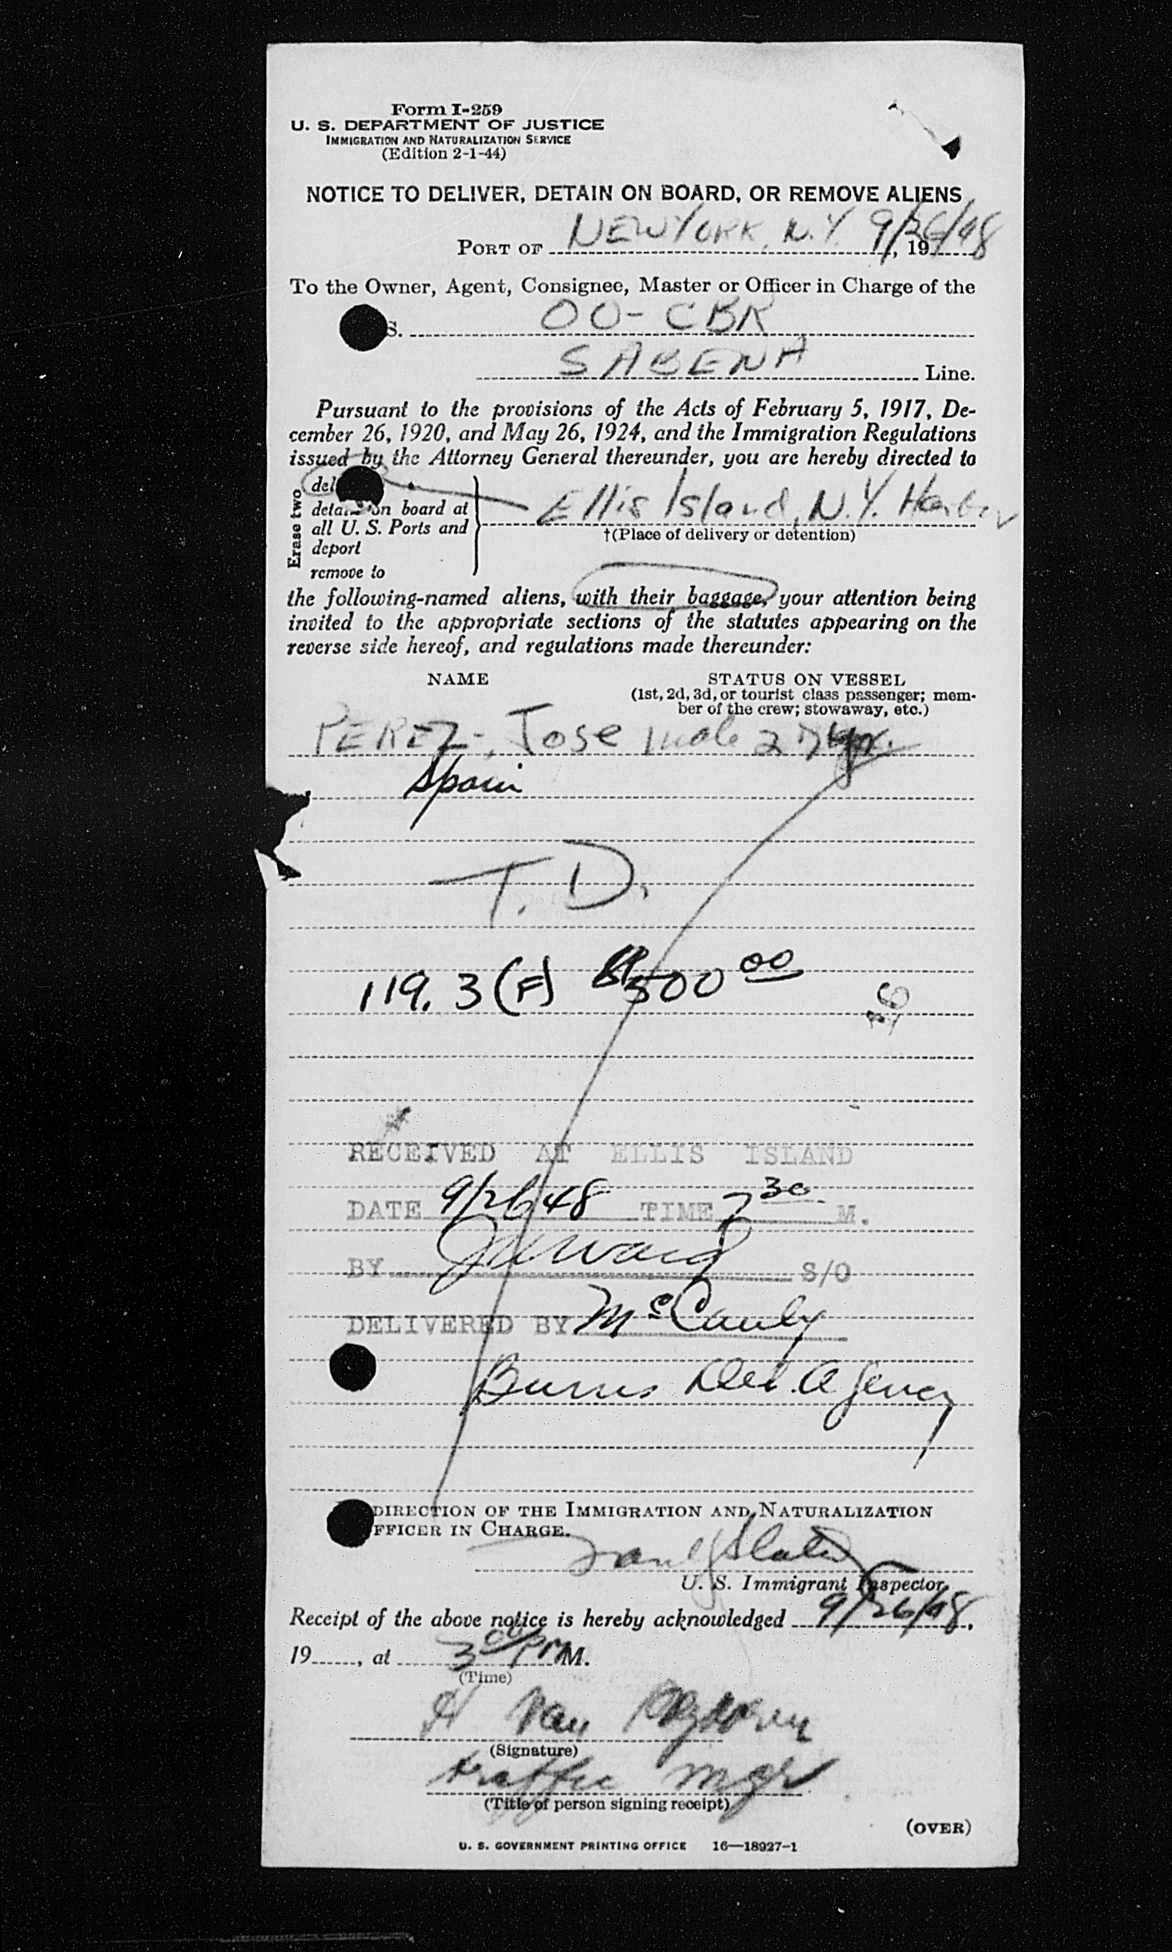 Form I-259
U. S. DEPARTMENT OF JUSTICE
IMMIGRATION AND NATURALIZATION SERVICE
(Edition 2-1-44)
NOTICE TO DELIVER, DETAIN ON BOARD, OR REMOVE ALIENS
PORT OF NEW YORK, N.Y. 9/26/48, 19
To the Owner, Agent, Consignee, Master or Officer in Charge of the
S. OO-CBR
SABENA Line.
Pursuant to the provisions of the Acts of February 5, 1917, De-
cember 26, 1920, and May 26, 1924, and the Immigration Regulations
issued by the Attorney General thereunder, you are hereby directed to
Erase two
del
detain on board at Ellis Island, N.Y. Harbor
all U. S. Ports and
†(Place of delivery or detention)
deport
remove to
the following-named aliens, with their baggage, your attention being
invited to the appropriate sections of the statutes appearing on the
reverse side hereof, and regulations made thereunder:
NAME STATUS ON VESSEL
(1st, 2d, 3d, or tourist class passenger; mem-
ber of the crew; stowaway, etc.)
PEREZ-, Jose male 27 yr.
Spain
T. D.
119. 3 (F) $500 00
16
RECEIVED AT ELLIS ISLAND
DATE 9/26/48 TIME 7 30 M.
BY S/O
DELIVERED BY McCauly
Burns Det. Agency
DIRECTION OF THE IMMIGRATION AND NATURALIZATION
OFFICER IN CHARGE.
U. S. Immigrant Inspector.
Receipt of the above notice is hereby acknowledged 9/26/48,
19......, at 3 00 PM M.
(Time)
H Van
(Signature)
traffic mgr
(Title of person signing receipt)
(OVER)
U. S. GOVERNMENT PRINTING OFFICE 16—18927-1